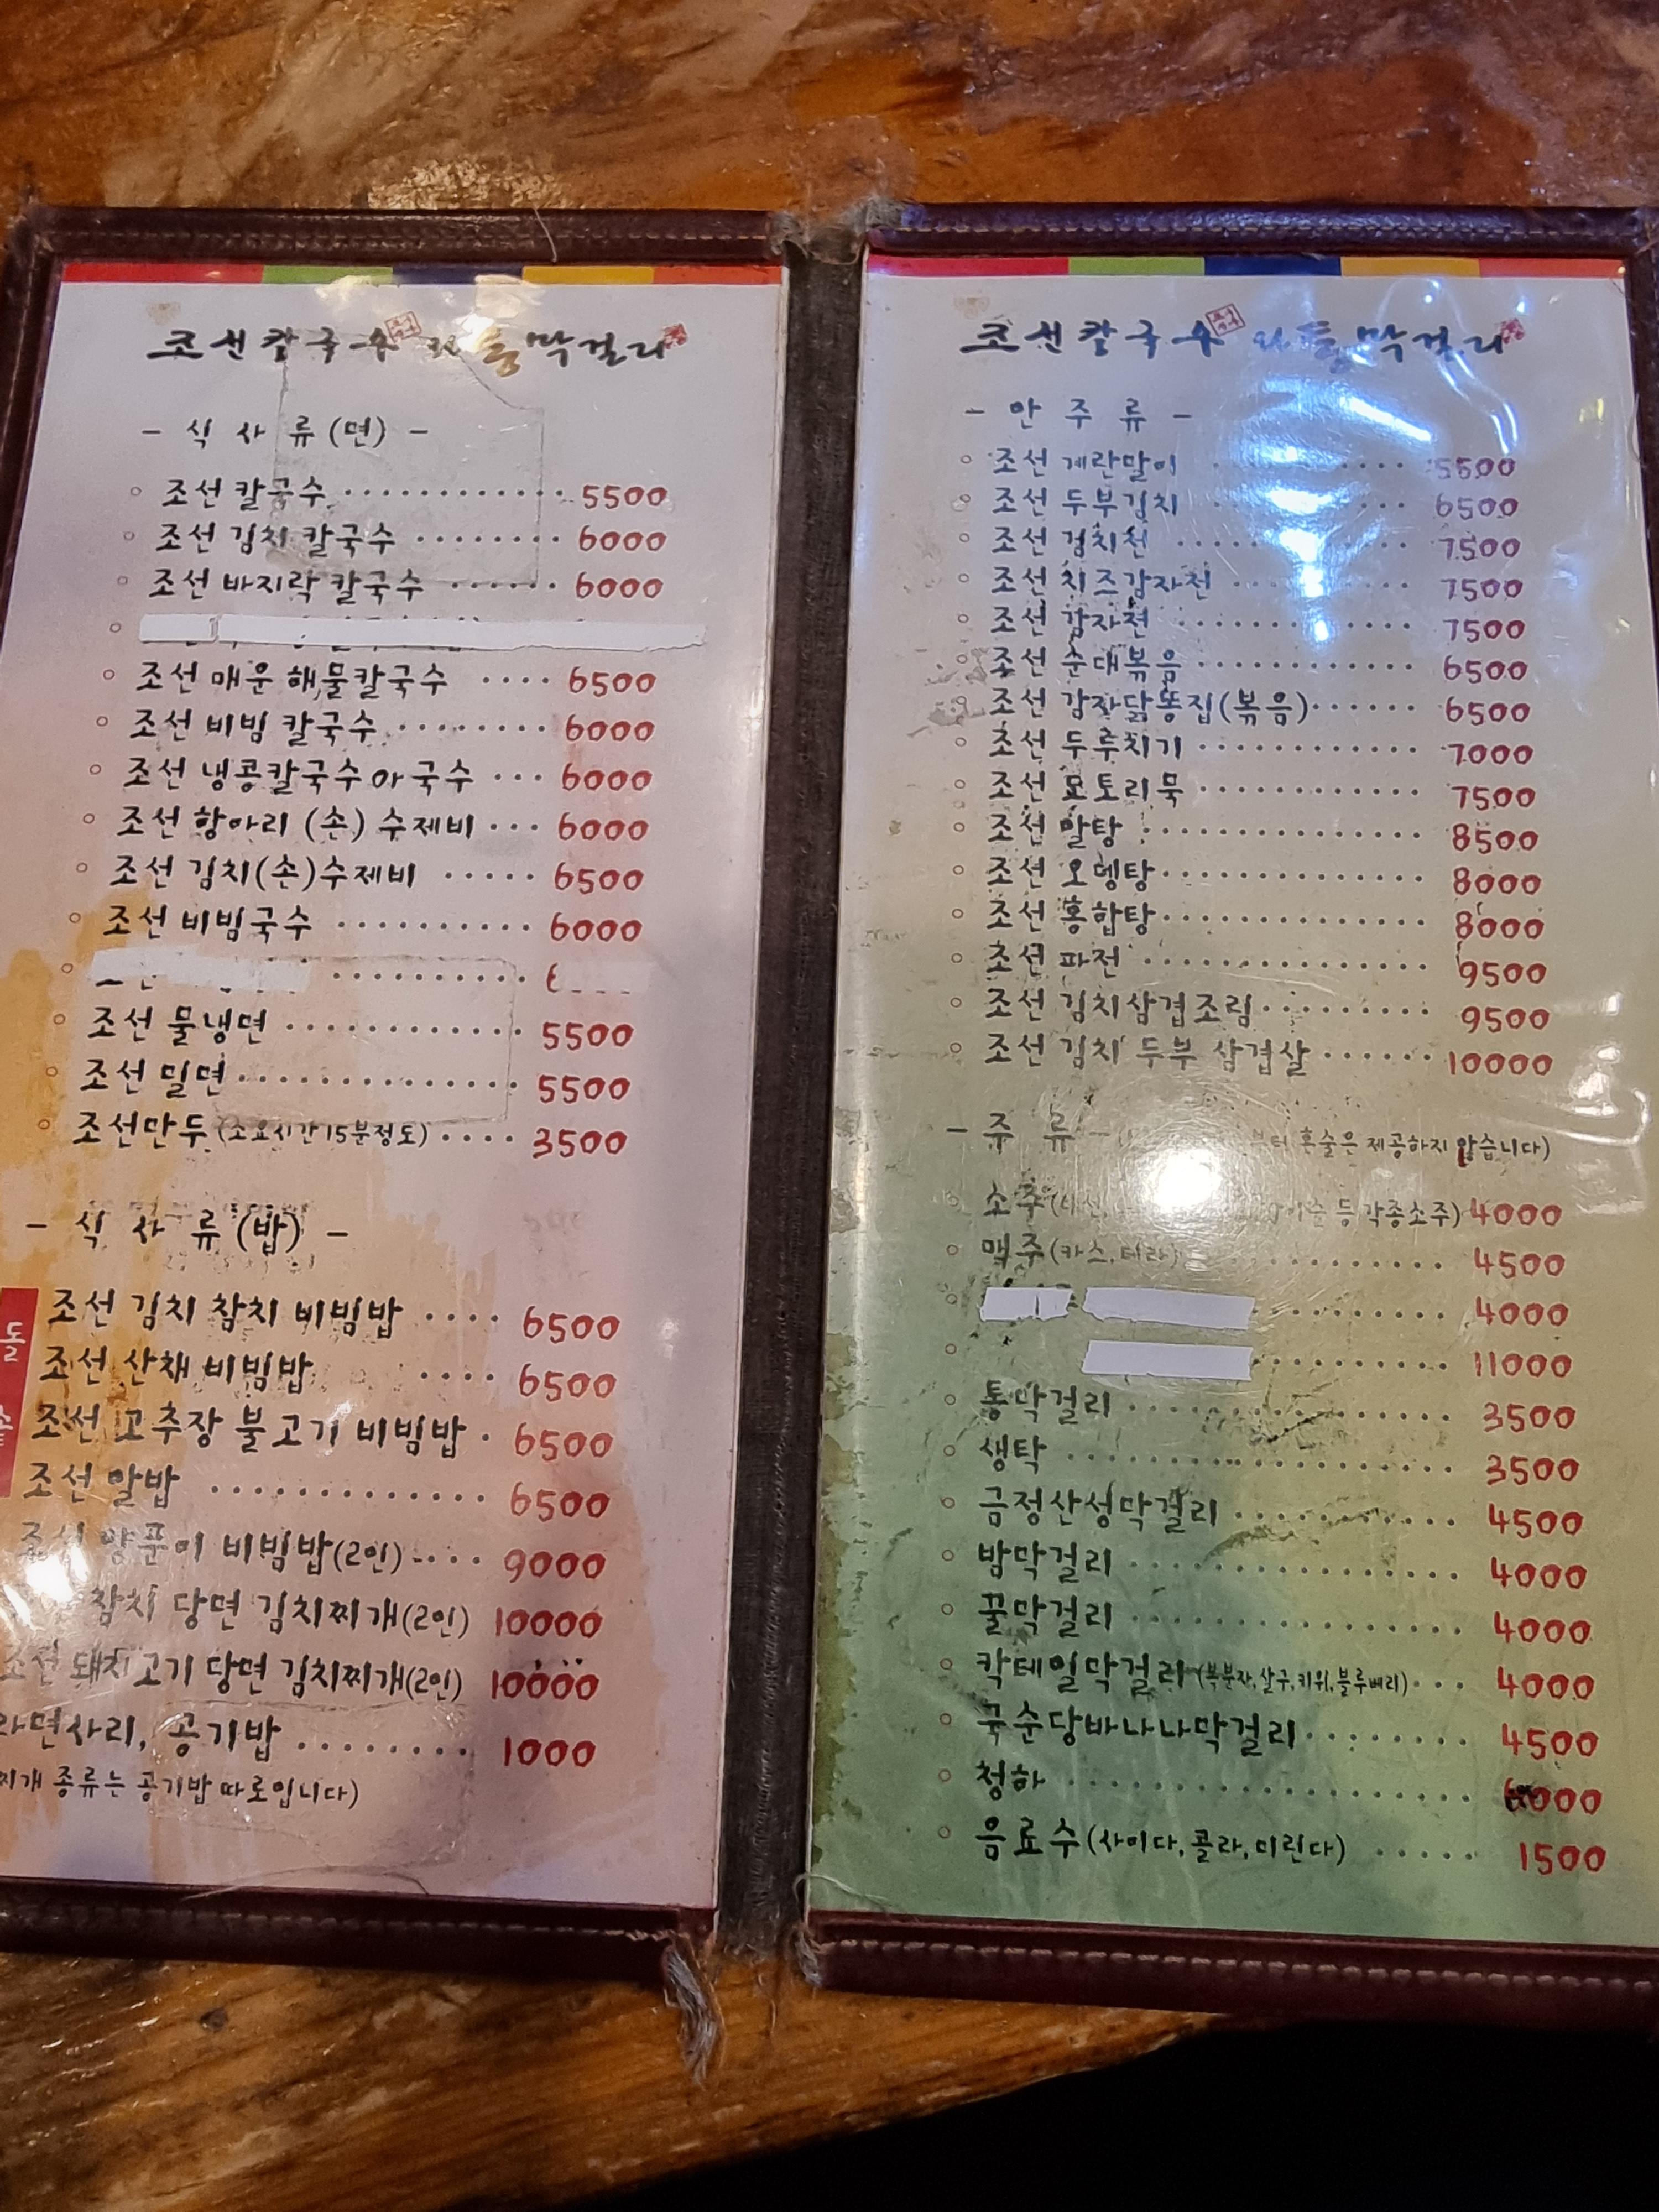 조선칼국수와 통막걸리
- 식 사 류 (면) -
조선 칼국수 ............ 5500
조선 김치 칼국수 ........ 6000
조선 바지락 칼국수 ...... 6000
조선 매운 해물칼국수 .... 6500
조선 비빔 칼국수 ........ 6000
조선 냉콩칼국수 아 국수 ... 6000
조선 항아리 (손) 수제비 ... 6000
조선 김치(손)수제비 ..... 6500
조선 비빔국수 .......... 6000
조선 물냉면 ............ 5500
조선 밀면 .............. 5500
조선만두 (소요시간 15분정도) .... 3500
- 식 사 류 (밥) -
돌
조선 김치 참치 비빔밥 .... 6500
조선 산채 비빔밥 .... 6500
솥
조선 고추장 불고기 비빔밥 . 6500
조선 알밥 ............. 6500
조선 양푼이 비빔밥(2인) .... 9000
참치 당면 김치찌개(2인) 10000
조선 돼지고기 당면 김치찌개(2인) 10000
라면사리, 공기밥 ........ 1000
찌개 종류는 공기밥 따로입니다)
조선칼국수와 통막걸리
- 안 주 류 -
조선 계란말이 ........ 5500
조선 두부김치 ........ 6500
조선 김치전 .......... 7500
조선 치즈감자전 ........ 7500
조선 감자전 ............ 7500
조선 순대볶음 ............ 6500
조선 감자닭똥집(볶음) ...... 6500
조선 두루치기 ............ 7000
조선 도토리묵 ............ 7500
조선 알탕 ............... 8500
조선 오뎅탕 .............. 8000
조선 홍합탕 .............. 8000
조선 파전 ............... 9500
조선 김치삼겹조림 ......... 9500
조선 김치 두부 삼겹살 ...... 10000
- 주 류 - 부터 혼술은 제공하지 않습니다)
소주 등 각종소주) 4000
맥주 (카스, 테라) ............ 4500
.......... 4000
.......... 11000
통막걸리 ................ 3500
생탁 ................... 3500
금정산성막걸리 .......... 4500
밤막걸리 ............... 4000
꿀막걸리 ............... 4000
칵테일막걸리 (복분자, 살구, 키위, 블루베리) ... 4000
국순당바나나막걸리 ........ 4500
청하 ................... 6000
음료수 (사이다, 콜라, 미린다) ..... 1500